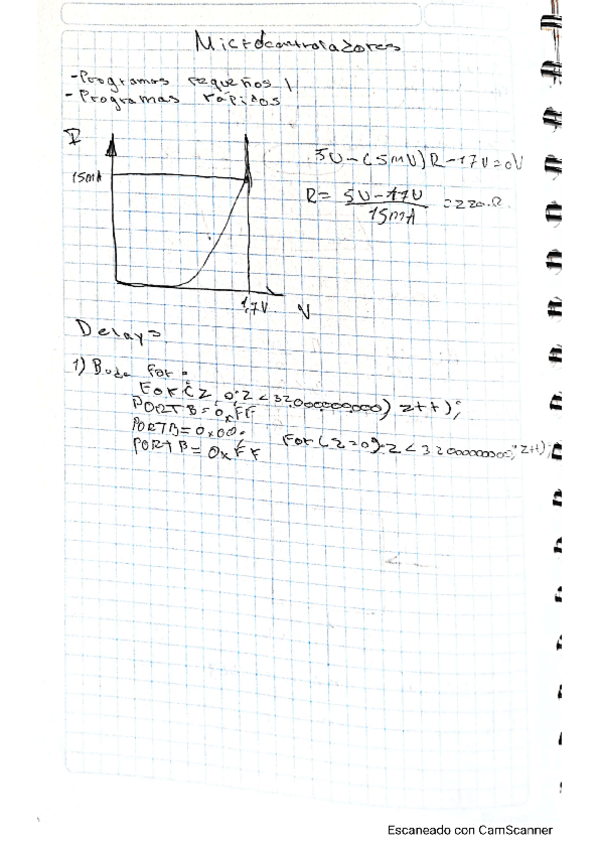 Microcontroladores
-Programas pequeños
-Programas rápidos
I
15mA
5V-(15mA)R-1.7V=0V
R= 5V-1.7V
15mA
=220Ω
1,7V V
Delay=
1) Bucle for:
For(z=0;z<32000000000;z++);
PORTB=0xFF
PORTB=0x00.
PORTB=0xFF For(z=0;z<32000000000;z++);
Escaneado con CamScanner